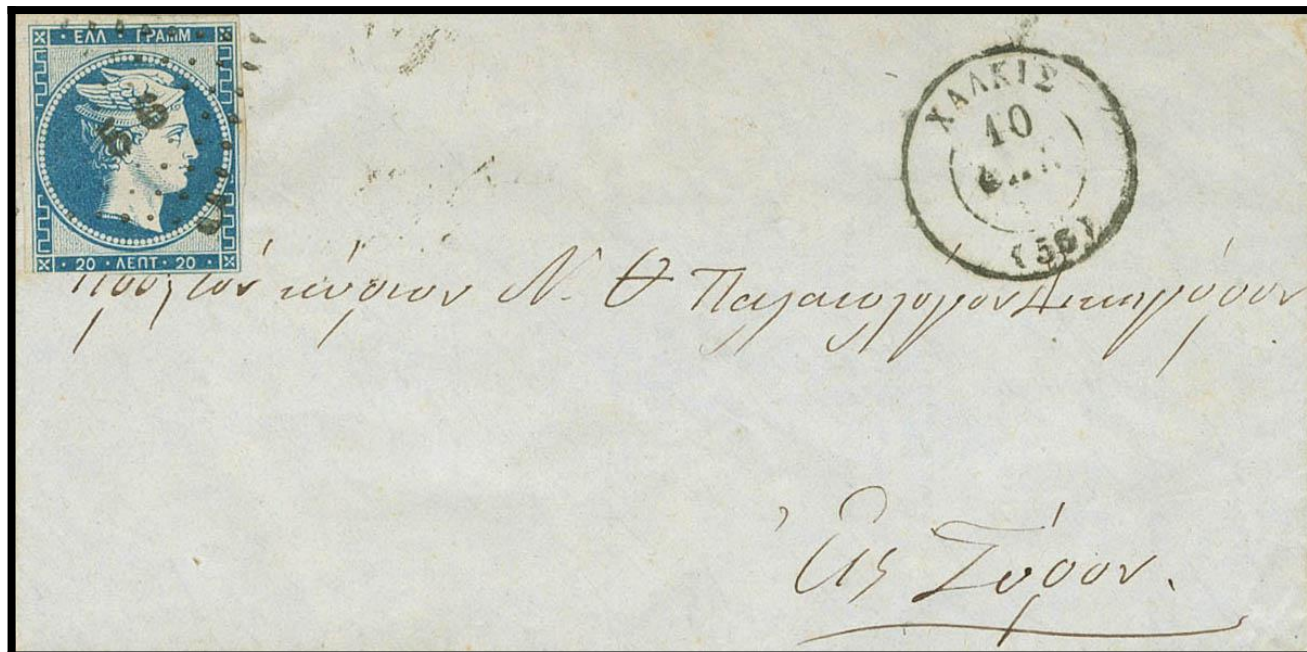 ΕΛΛ ΓΡΑΜΜ
55
20 ΛΕΠΤ 20
ΧΑΛΚΙΣ
10
(55)
Προς τον κύριον Ν. Θ Παλαιολόγον Δικηγόρον
Εις Σύρον.